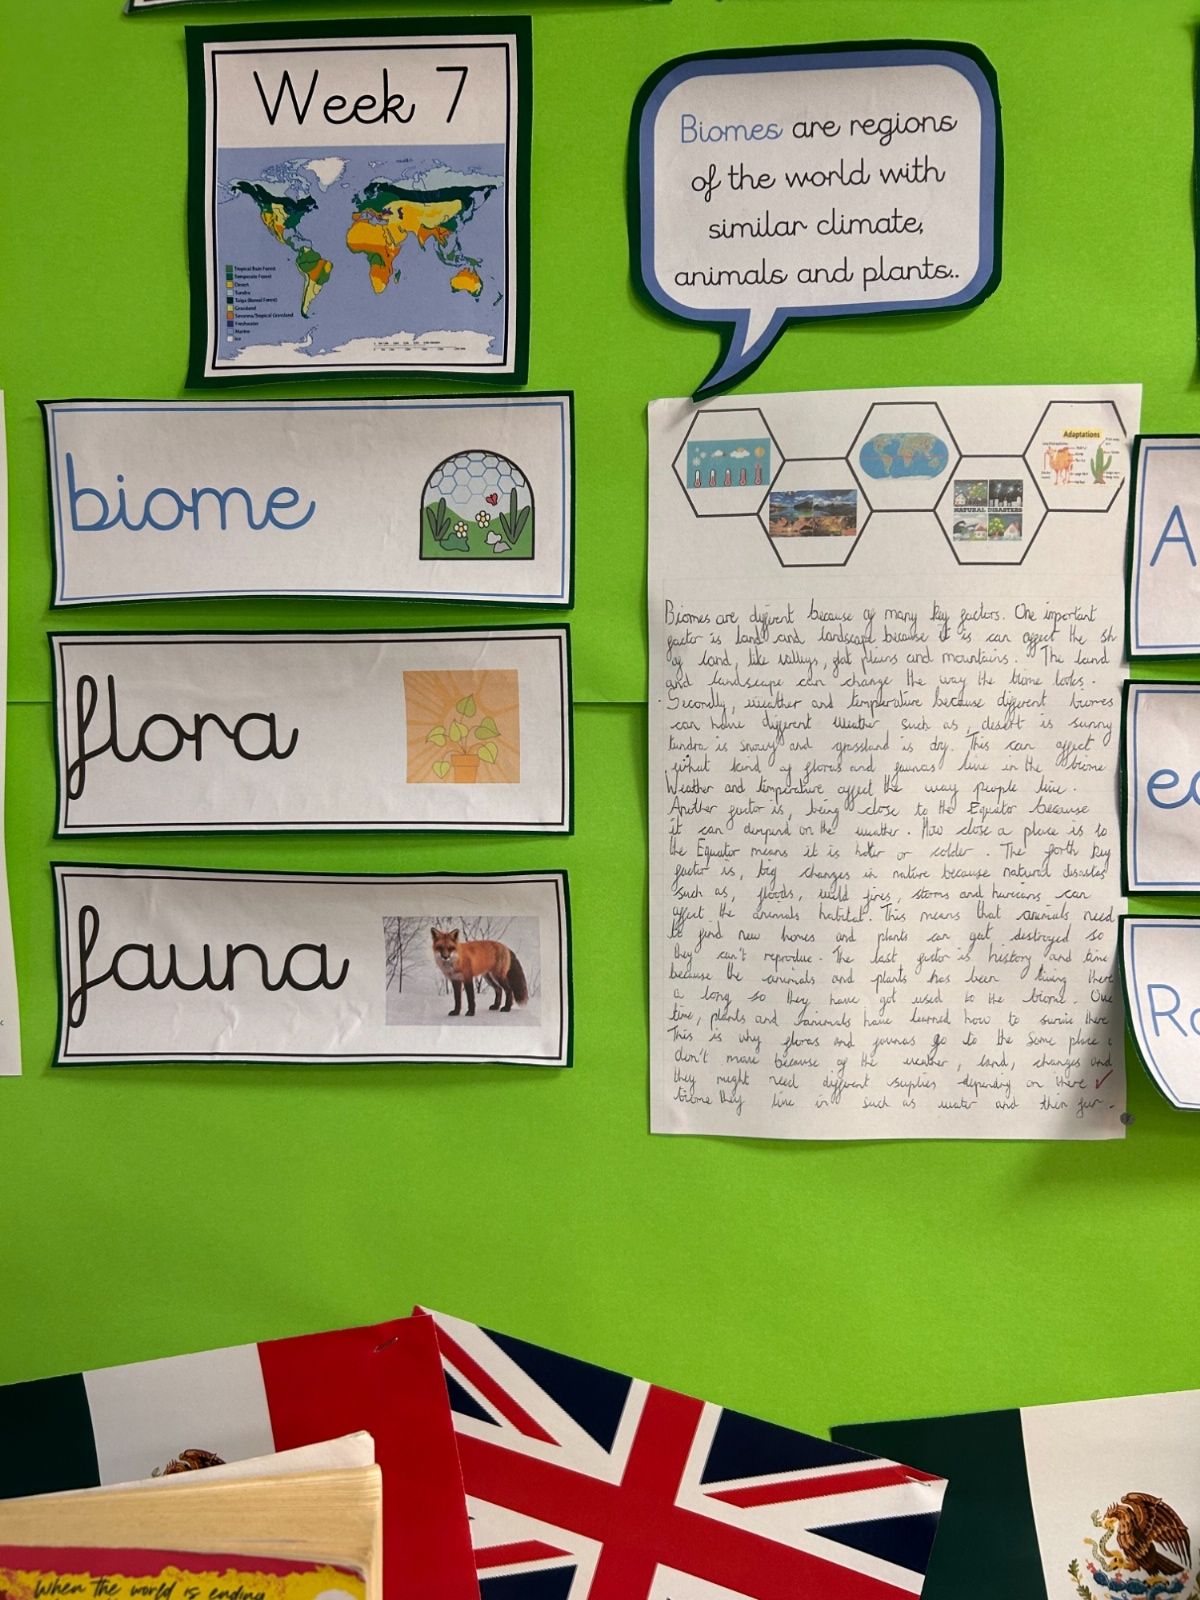 Week 7
Tropical Rain Forest
Temperate Forest
Desert
Tundra
Taiga (Boreal Forest)
Grassland
Savanna/Tropical Grassland
Freshwater
Marine
Ice
Biomes are regions
of the world with
similar climate,
animals and plants..
biome
flora
fauna
Adaptations
NATURAL DISASTERS
Biomes are diffrent because of many key factors. One important
factor is land and landscape because it is can affect the sh
of land, like valleys, flat plains and mountains. The land
and landscape can change the way the biome looks.
Secondly, weather and temperature because diffrent biomes
can have diffrent weather such as, desert is sunny
tundra is snowy and grassland is dry. This can affect
what kind of floras and faunas live in the biome.
Weather and temperature affect the way people live.
Another factor is, being close to the Equator because
it can dempend on the weather. How close a place is to
the Equator means it is hotter or colder. The forth key
factor is, big changes in nature because natural disastas
such as, floods, wild fires, storms and huricans can
affect the animals habitat. This means that animals need
to find new homes and plants can get destroyed so
they can't reproduce. The last factor is history and time
because the animals and plants has been living there
a long so they have got used to the biome. Over
time, plants and animals have learned how to survive there
This is why floras and faunas go to the same place
don't move because of the weather, land, changes and
they might need diffrent supplies depending on there
biome they live in such as water and their fur.
A
Ro
When the world is ending